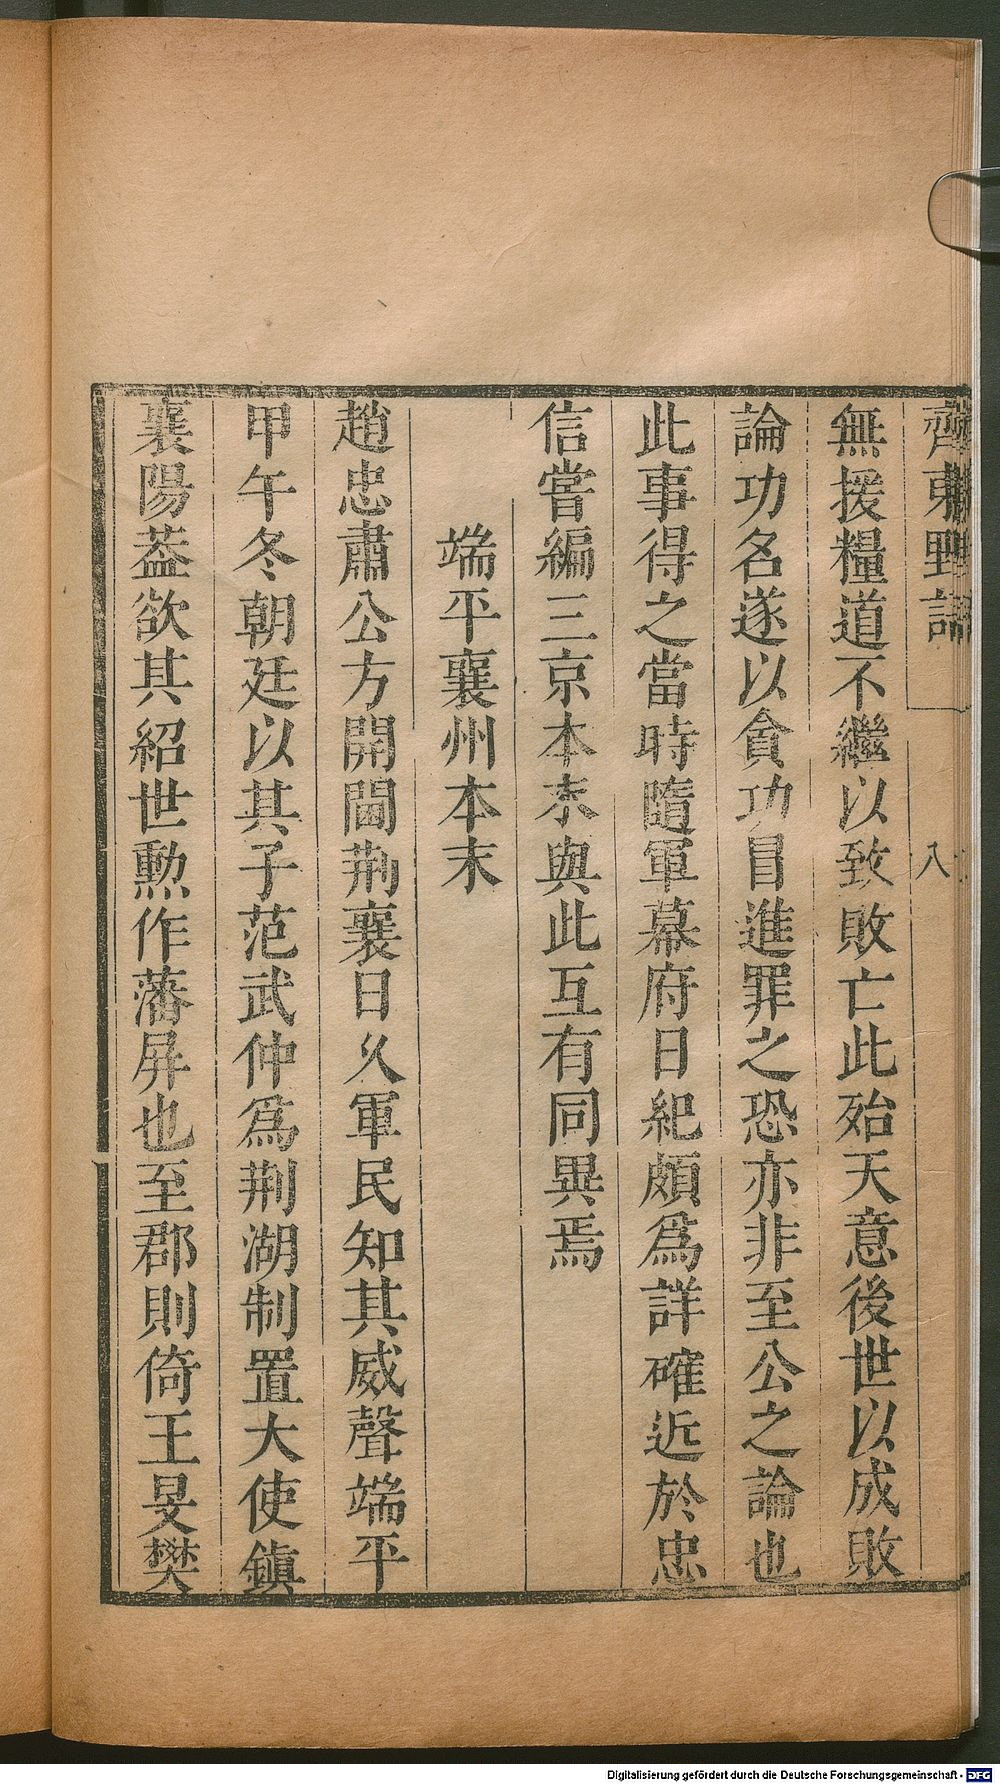 齊東野語
八
無援糧道不繼以致敗亡此殆天意後世以成敗
論功名遂以貪功冒進罪之恐亦非至公之論也
此事得之當時隨軍幕府日紀頗爲詳確近於忠
信嘗編三京本末與此互有同異焉
端平襄州本末
趙忠肅公方開閫荆襄日久軍民知其威聲端平
甲午冬朝廷以其子范武仲爲荆湖制置大使鎭
襄陽葢欲其紹世勲作藩屏也至郡則倚王旻樊
Digitalisierung gefördert durch die Deutsche Forschungsgemeinschaft - DFG